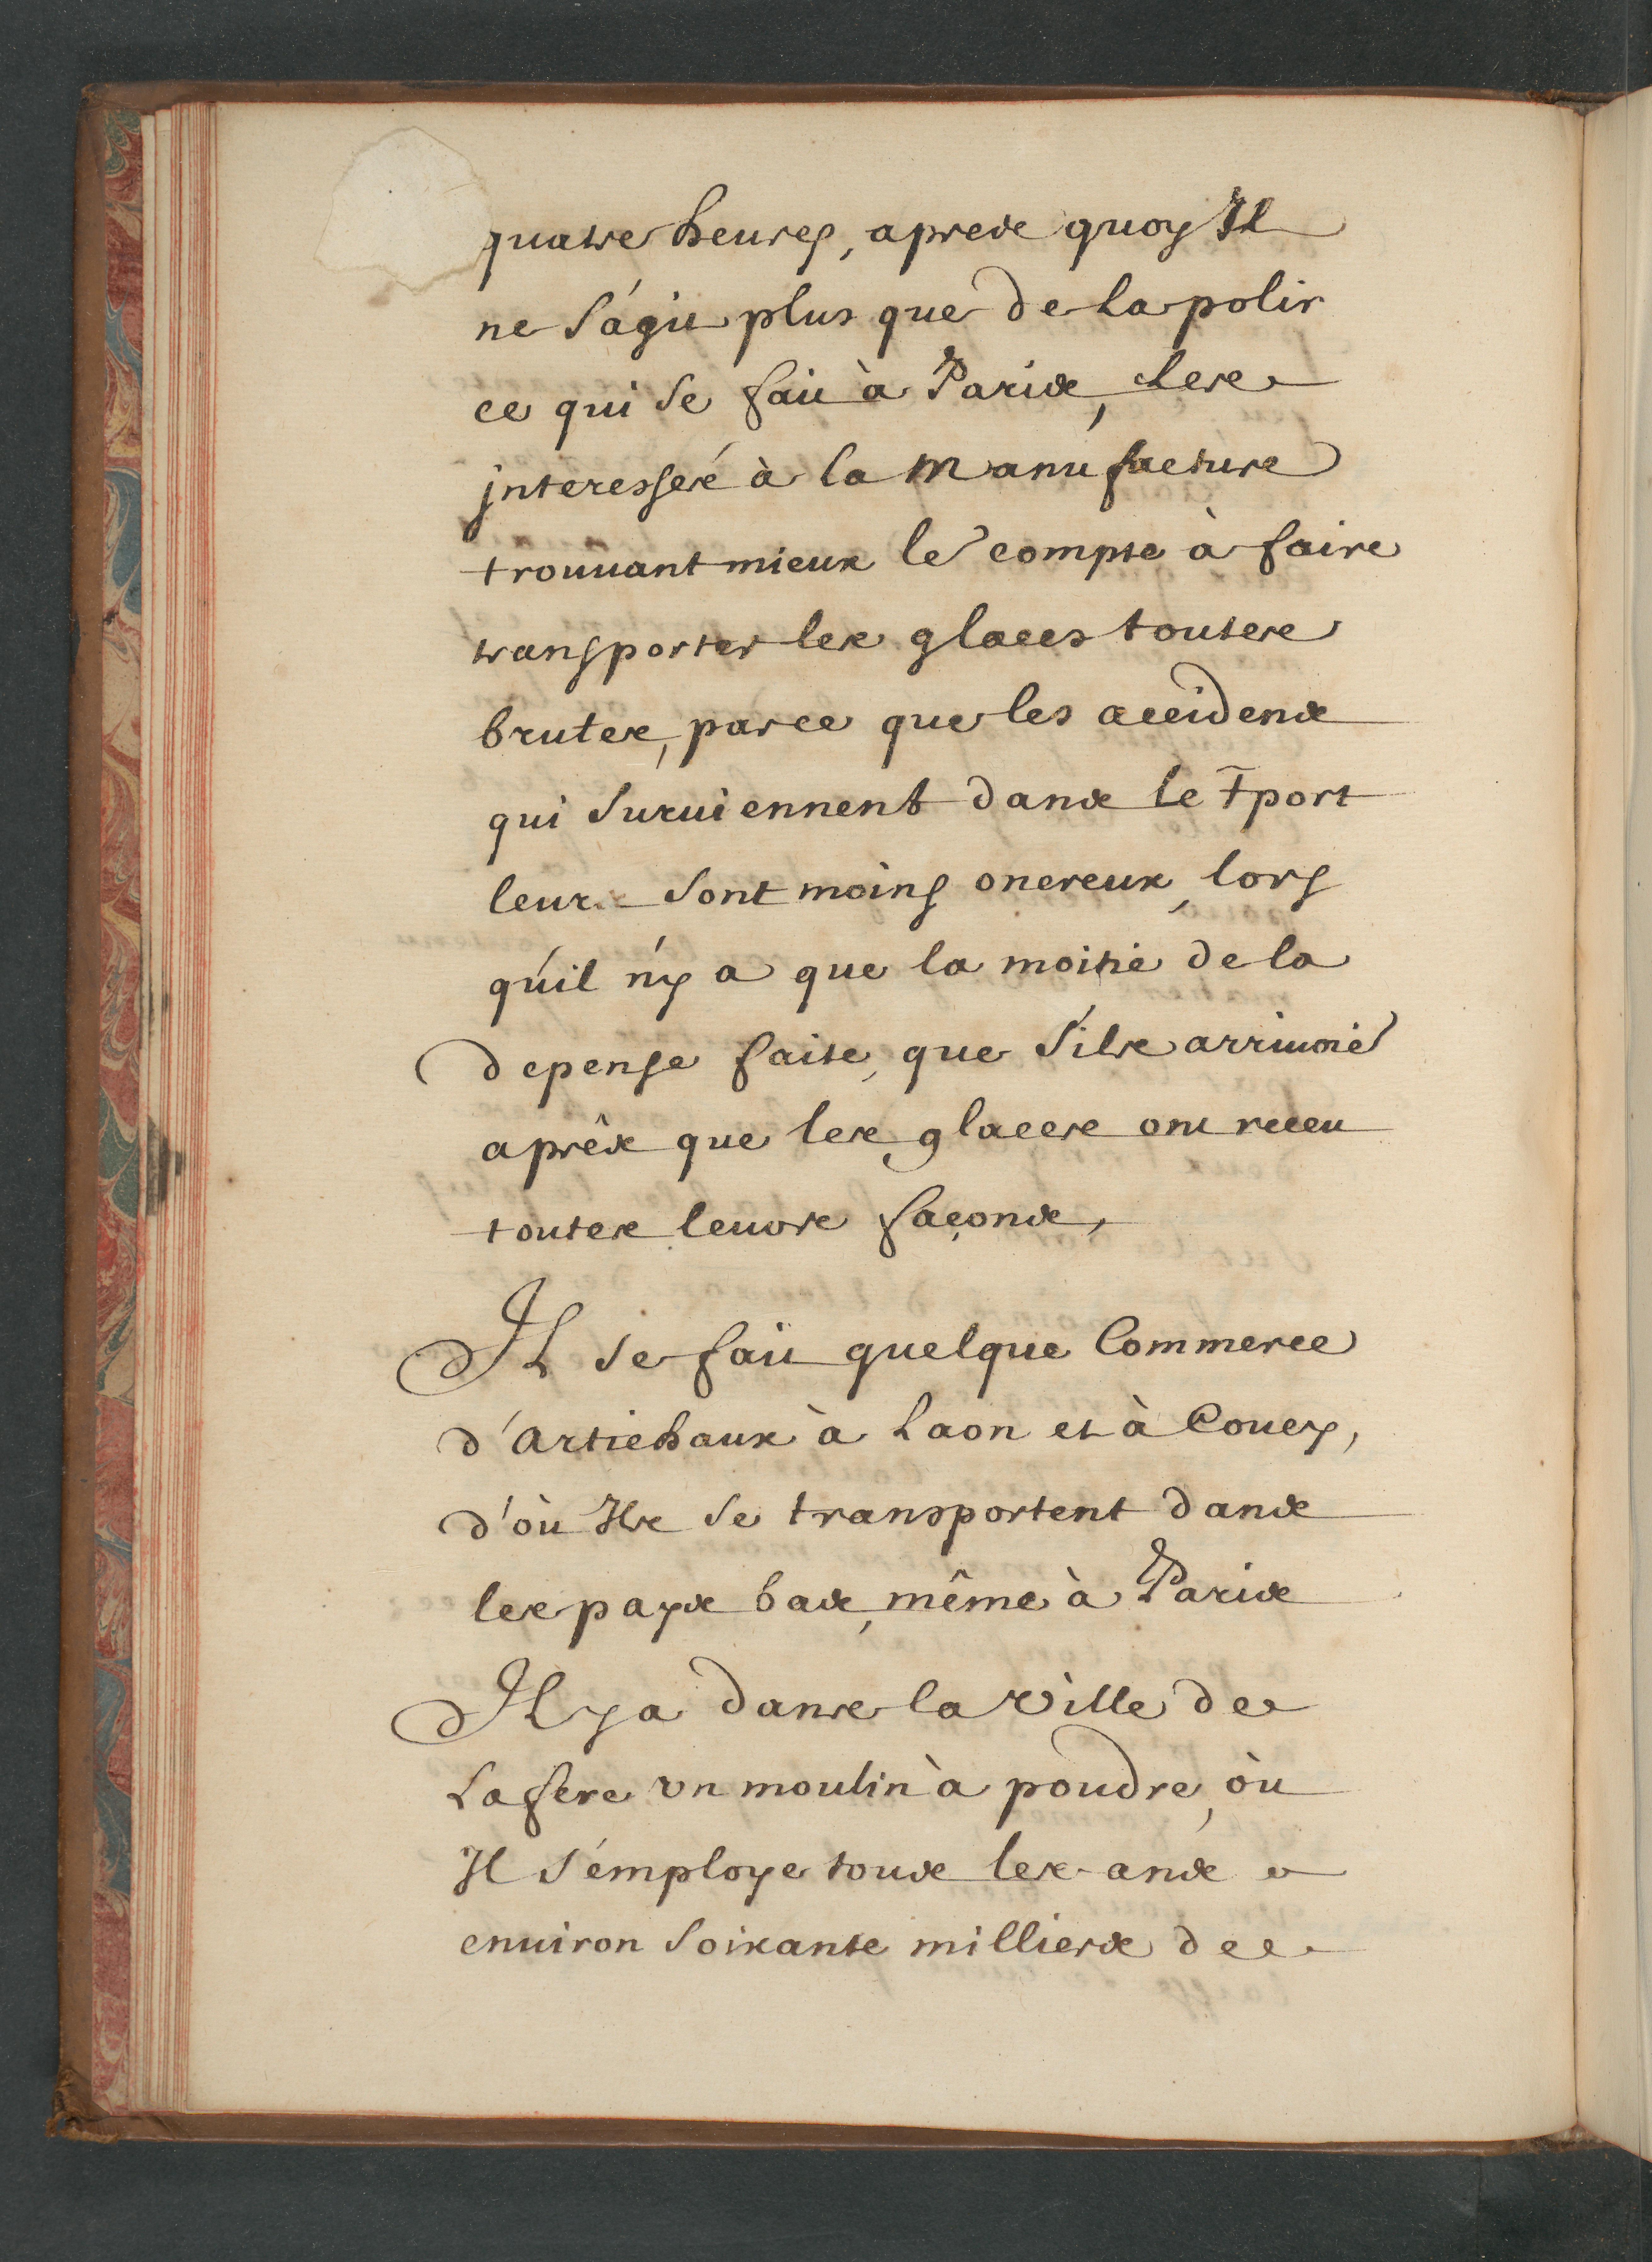 quatre heures, apres quoy Il
ne s'agit plus que de la polir
ce qui se fait à Paris, les
jnteressés à la Manufacture
trouuant mieux le compte à faire
transporter les glaces toutes
brutes, parce que les accidens
qui suruiennent dans le Tport
leur sont moins onereux, lors
qu'il n'y a que la moitié de la
depense faite, que s'ils arriuoiẽ
aprês que les glaces ont receu
toutes leurs façons,
Il se fait quelque Commerce
d'Artichaux à Laon et à Coucy,
d'où Ils se transportent dans
les pays bas, même à Paris
Il y a dans la ville de
La fere vn moulin à poudre, où
Il s'employe tous les ans
enuiron soixante milliers de